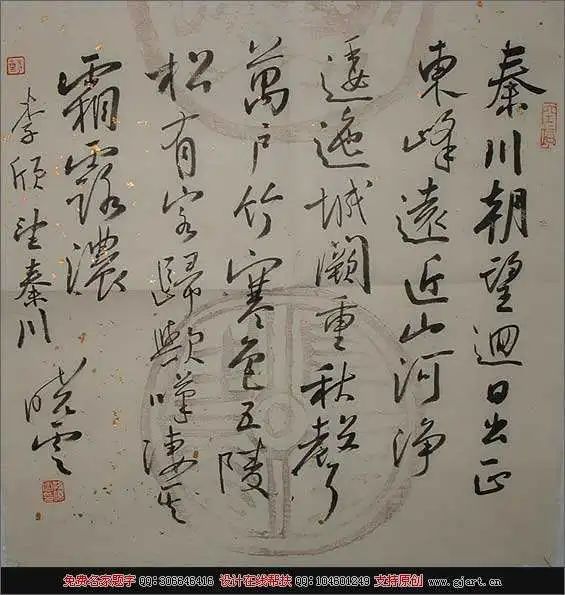 秦川朝望迴日出正
東峰遠近山河净
逶迤城闕重秋聲
萬户竹寒色五陵
松有客歸歟嘆凄其
霜露濃
李颀望秦川
晓雲
免费名家题字 QQ:306646416 设计在线帮扶 QQ:104601249 支持原创 www.gjart.cn